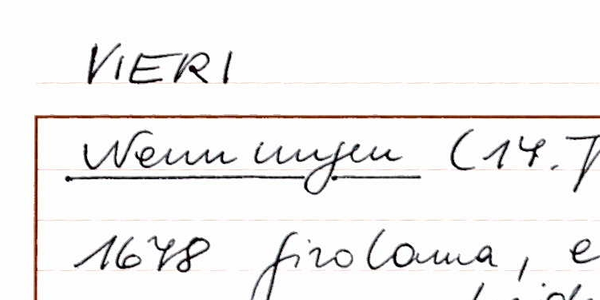 VIERI
Nennungen (14.
1678 Girolama,